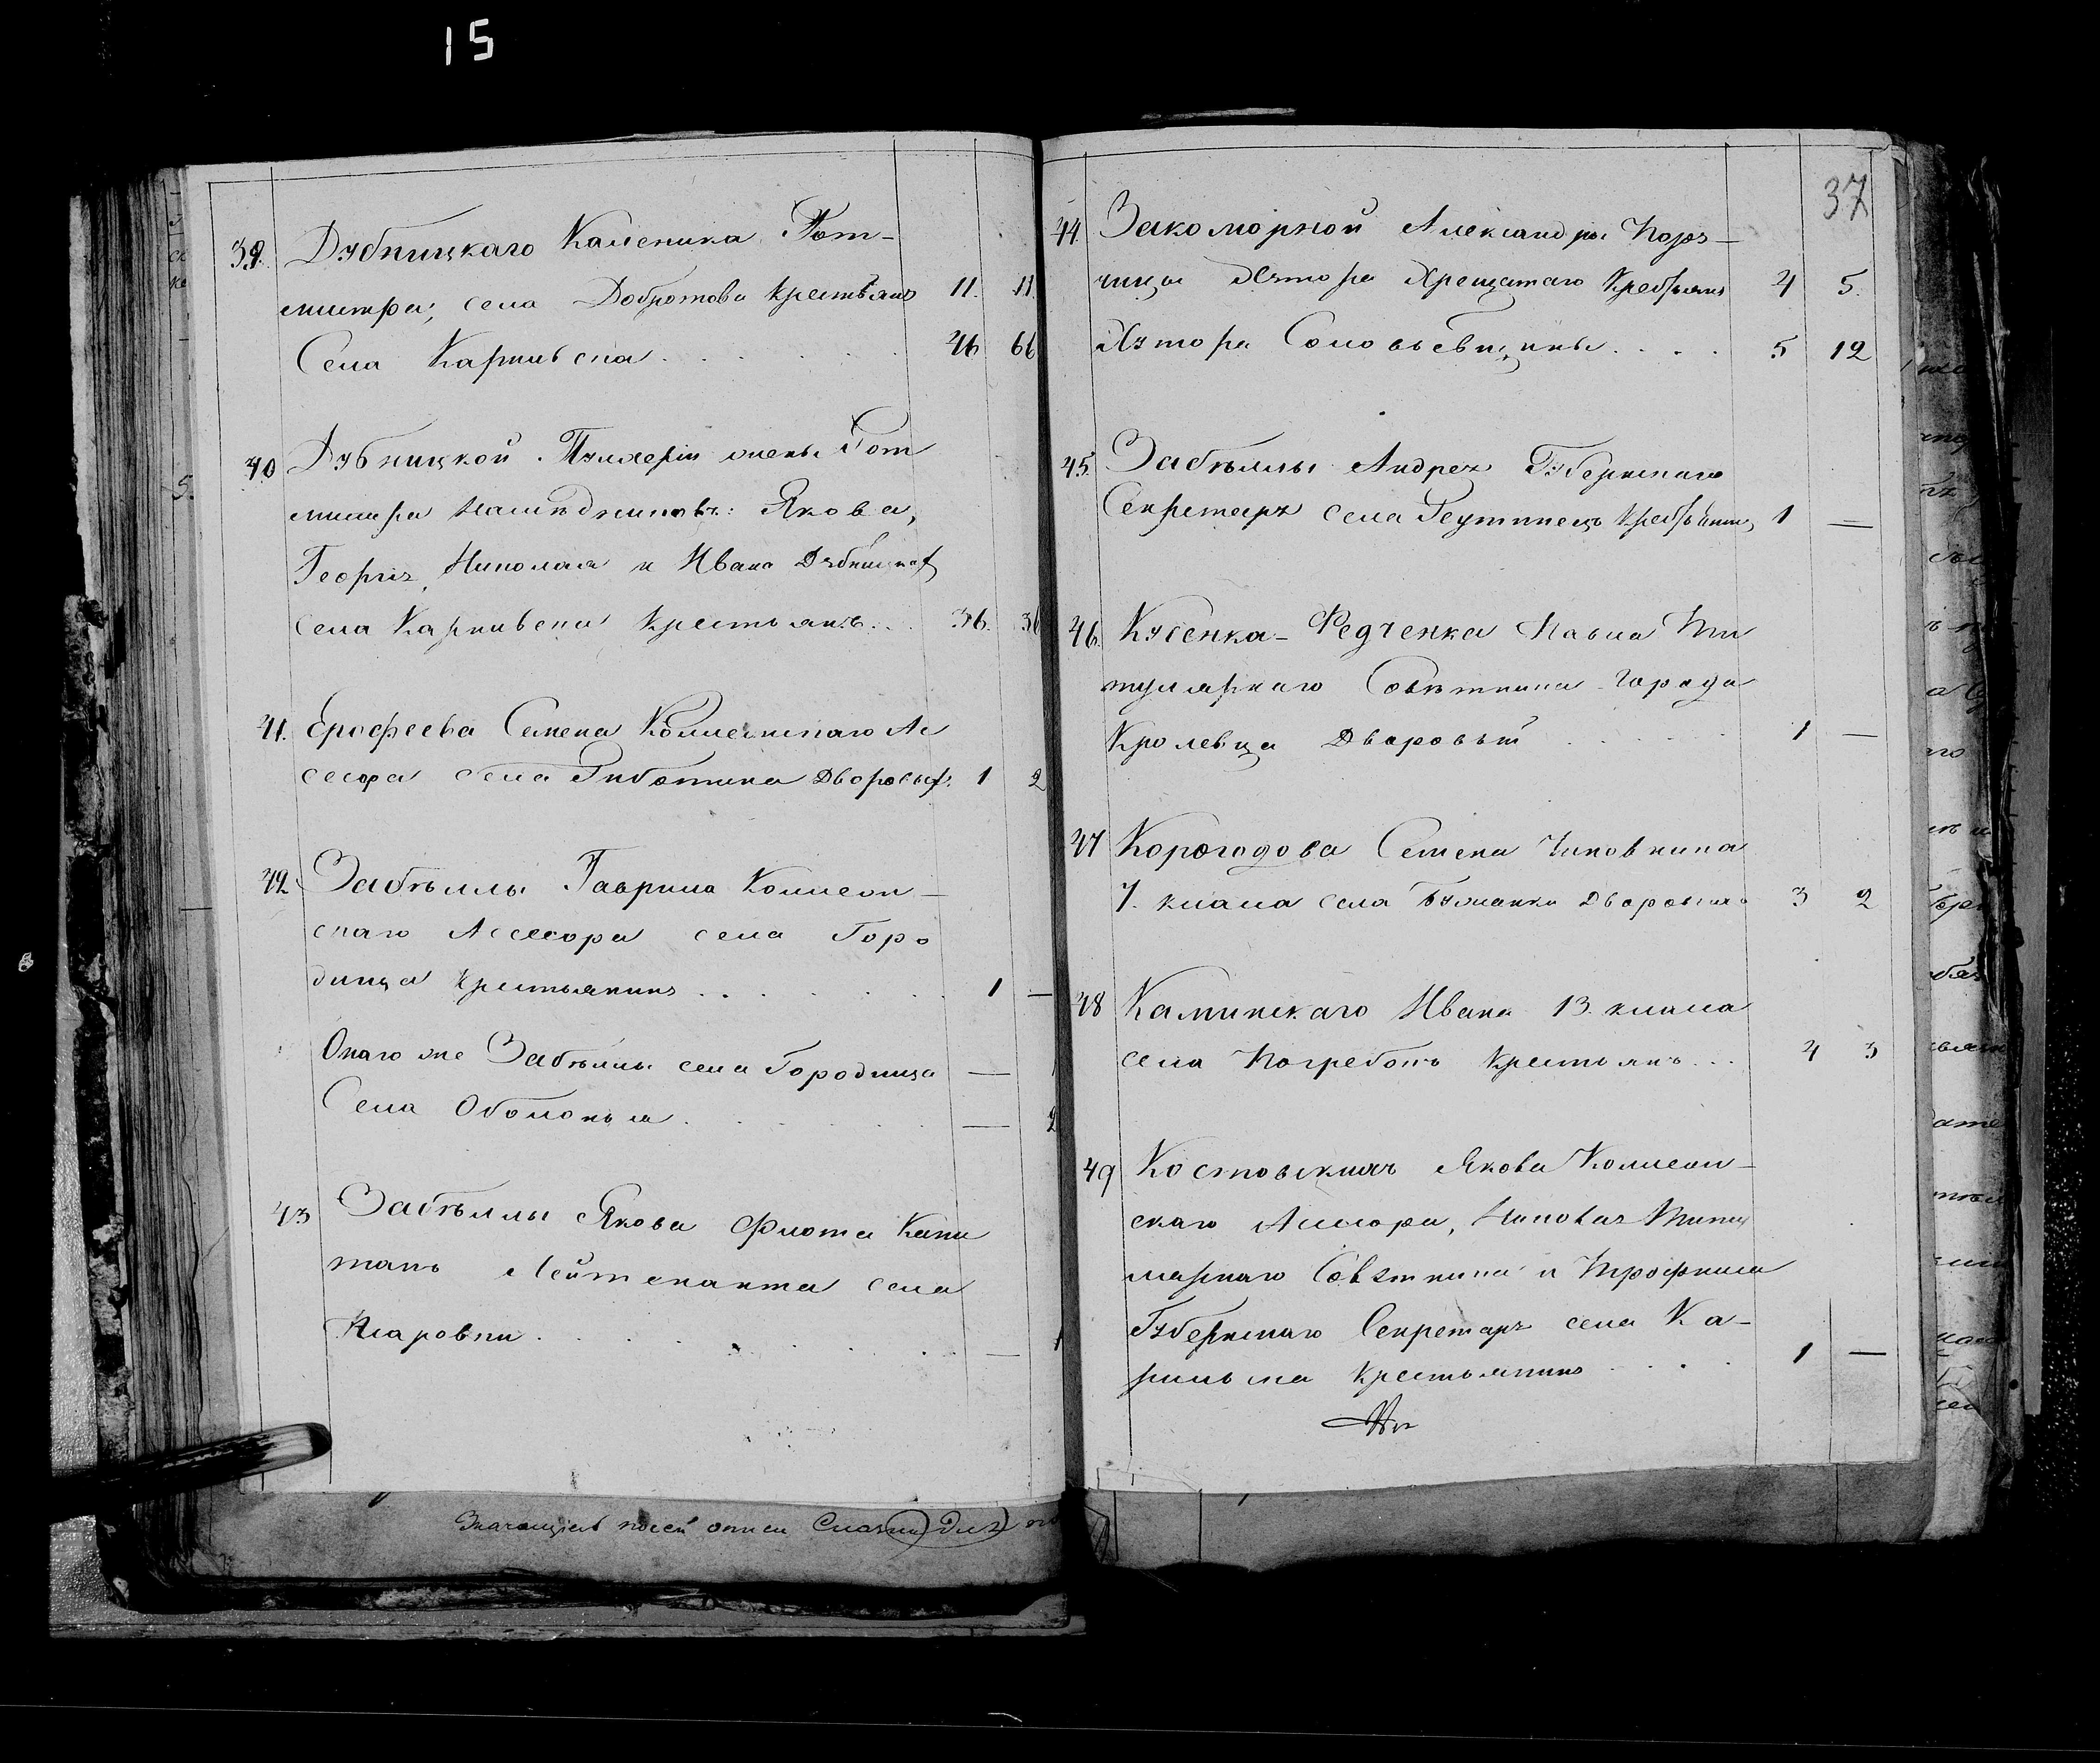 15
39. Дубницкаго Каленика Рот-
мистра, села Добротова Крестьянъ 11. 11
Села Карпивска . . . . . 46 66
40 Дубницкой Пульхеріи жены Рот
мистра Наслѣдниковъ: Якова,
Георгія, Николая и Ивана Дубницких
села Карпивски Крестьянъ . . . 36. 36
41. Ерофеева Семена Коллежскаго Ас
сесора села Гнботина Дворовых. 1 2
42 Забѣллы Гаврила Коллеж-
скаго Ассесора села Горо
дища Крестьянинъ . . . . . . 1 —
Онаго же Забѣллы села Городища —
Села Оболонья . . . . . . — 2
43 Забѣллы Якова Флота Капи
танъ Лейтенанта села
Макровки . . . . . . — 1
Значащіеся по сей описи
37
44. Закоморной Александры Пору-
чицы Хутора Хрещатаго Крестьянъ 4 5.
Хутора Соловьевщины . . . . 5 12
45. Забѣллы Андрея Губернскаго
Секретаря села Реутинецъ Крестьянинъ 1 —
46. Кусенка-Федченка Павла Ти
тулярнаго Совѣтника города
Кролевца Дворовый . . . . . 1 —
47 Корогодова Семена Чиновника
7. класа села Бужанки Дворовыхъ 3 2
48 Каминскаго Ивана 13. класа
села Погребокъ Крестьянъ . . . 4 3
49 Костовскихъ Якова Коллеж-
скаго Ассесора, Николая Титу
лярнаго Совѣтника и Трофима
Губернскаго Секретаря села Ка-
рильска Крестьянинъ . . . . 1 —